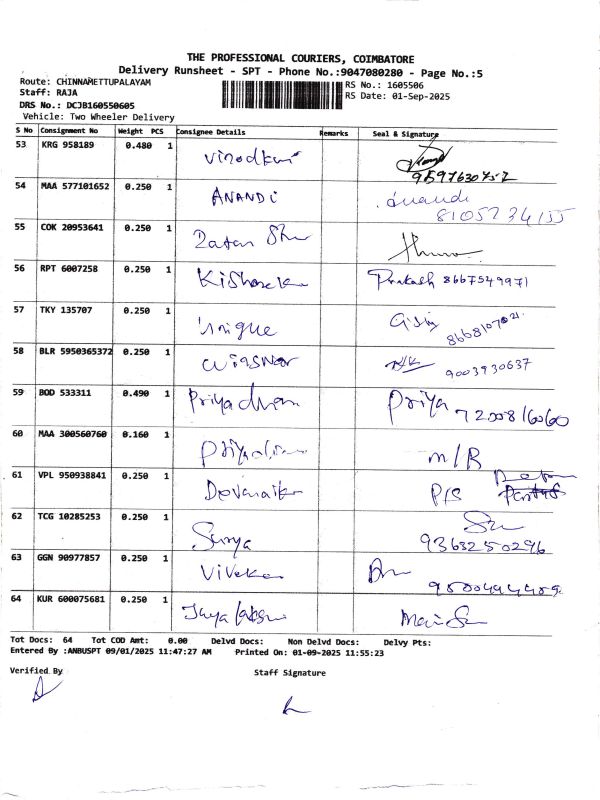 THE PROFESSIONAL COURIERS, COIMBATORE
Delivery Runsheet - SPT - Phone No.:9047080280 - Page No.:5
Route: CHINNAMETTUPALAYAM
RS No.: 1605506
Staff: RAJA
RS Date: 01-Sep-2025
DRS No.: DCJB160550605
Vehicle: Two Wheeler Delivery
S No Consignment No Weight PCS Consignee Details Remarks Seal & Signature
53 KRG 958189 0.480 1
9597630752
54 MAA 577101652 0.250 1 ANANDi Anandi
8105234155
55 COK 20953641 0.250 1 Ratan
56 RPT 6007258 0.250 1 Prakash 8667549971
57 TKY 135707 0.250 1 unique
58 BLR 5950365372 0.250 1 9003930637
59 BOD 533311 0.490 1 Priyadharn Priya 7200816060
60 MAA 300560760 0.160 1 M/R
61 VPL 950938841 0.250 1 P/S
62 TCG 10285253 0.250 1 Surya
9363250296
63 GGN 90977857 0.250 1 Vivek
64 KUR 600075681 0.250 1
Tot Docs: 64 Tot COD Amt: 0.00 Delvd Docs: Non Delvd Docs: Delvy Pts:
Entered By :ANBUSPT 09/01/2025 11:47:27 AM Printed On: 01-09-2025 11:55:23
Verified By Staff Signature